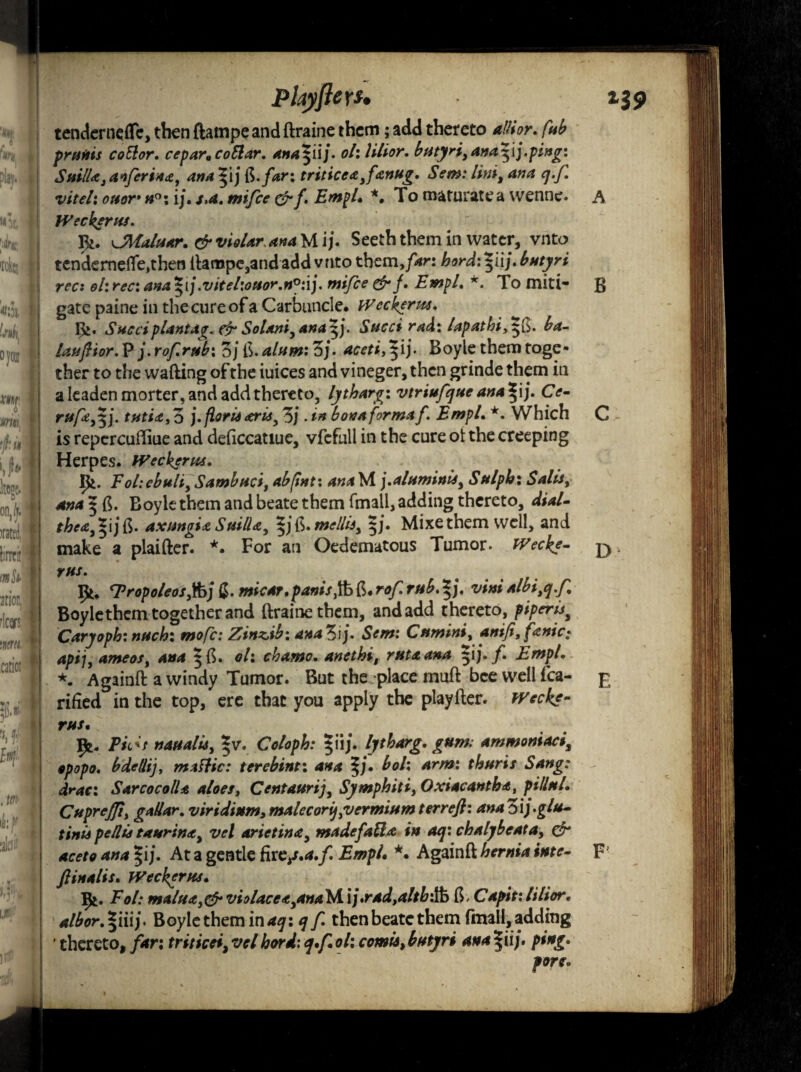 Playsters.
239
tendernesse, then stampe and straine them ; add thereto allior. sub
prunis coctor. cepar. coctar. ana ℥iij. ol: lilior. butyri, ana ℥ij. ping:
Suillæ, anserinæ, ana ℥ij ß. far: triticeæ, fænug. Sem: lini, ana q.s.
vitel: ouor• nº: ij. s.a. misce & f. Empl. *. To maturate a wenne.
A
Weckerus.
℞. Maluar. & violar. ana M ij. Seeth them in water, vnto
tendernesse, then stampe, and add vnto them, far: hord: ℥iij. butyri
rec: ol: rec: ana ℥ij. vitel: ouor. nº: ij. misce & f. Empl. *. To miti-
B
gate paine in the cure of a Carbuncle. Weckerus.
℞. Succi plantag. & Solani, ana ℥j. Succi rad: lapathi, ℥ß. ba-
laustior. P j. ros. rub: ʒj ß. alum: ʒj. aceti, ℥ij. Boyle them toge-
ther to the wasting of the iuices and vineger, then grinde them in
a leaden morter, and add thereto, lytharg: vtriusque ana ℥ij. Ce-
rusæ, ℥j. tutiæ, ʒ j. floris æris, ʒj . in bona forma f. Empl. *. Which
C
is repercussiue and desiccatiue, vsefull in the cure of the creeping
Herpes. Weckerus.
℞. Fol: ebuli, Sambuci, absint: ana M j. aluminis, Sulph: Salis,
ana ℥ ß. Boyle them and beate them small, adding thereto, dial-
theæ, ℥ij ß. axungiæ Suillæ, ℥j ß. mellis, ℥j. Mixe them well, and
make a plaister. *. For an Oedematous Tumor. Wecke-
D
rus.
℞. Propoleos, ℔j ß. micar. panis, ℔ ß. ros. rub. ℥j. vini albi, q.s.
Boyle them together and straine them, and add thereto, piperis,
Caryoph: nuch: mosc: Zinzib: ana ʒij. Sem: Cumini, anisi, fænic:
apij, ameos, ana ℥ ß. ol: chamo. anethi, rutæ ana ℥ij. f. Empl.
*. Against a windy Tumor. But the place must bee well sca-
E
rified in the top, ere that you apply the playster. Wecke-
rus.
℞. Picis naualis, ℥v. Coloph: ℥iij. lytharg. gum: ammoniaci,
opopo. bdellij, mastic: terebint: ana ℥j. bol: arm: thuris Sang:
drac: Sarcocollæ aloes, Centaurij, Symphiti, Oxiacanthæ, pillul.
Cupressi, gallar. viridium, malecorij, vermium terrest: ana ʒij. glu-
tinis pellis taurinæ, vel arietinæ, madefactæ in aq: chalybeata, &
aceto ana ℥ij. At a gentle fire, s.a.f. Empl. *. Against hernia inte-
F
stinalis. Weckerus.
℞. Fol: maluæ, & violaceæ, ana M ij. rad, alth: ℔ ß. Capit: lilior.
albor. ℥iiij. Boyle them in aq: q s. then beate them small, adding
thereto, far: triticei, vel hord: q.s. ol: comis, butyri ana ℥iij. ping.
porc.